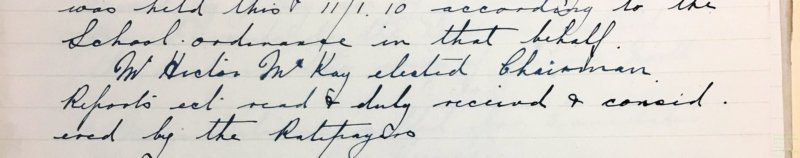 was held this 11/1.10 according to the
School ordinance in that behalf.
Mr Hector McKay elected Chairman
Reports ect read & duly receivd & consid.
ered by the Ratepayers